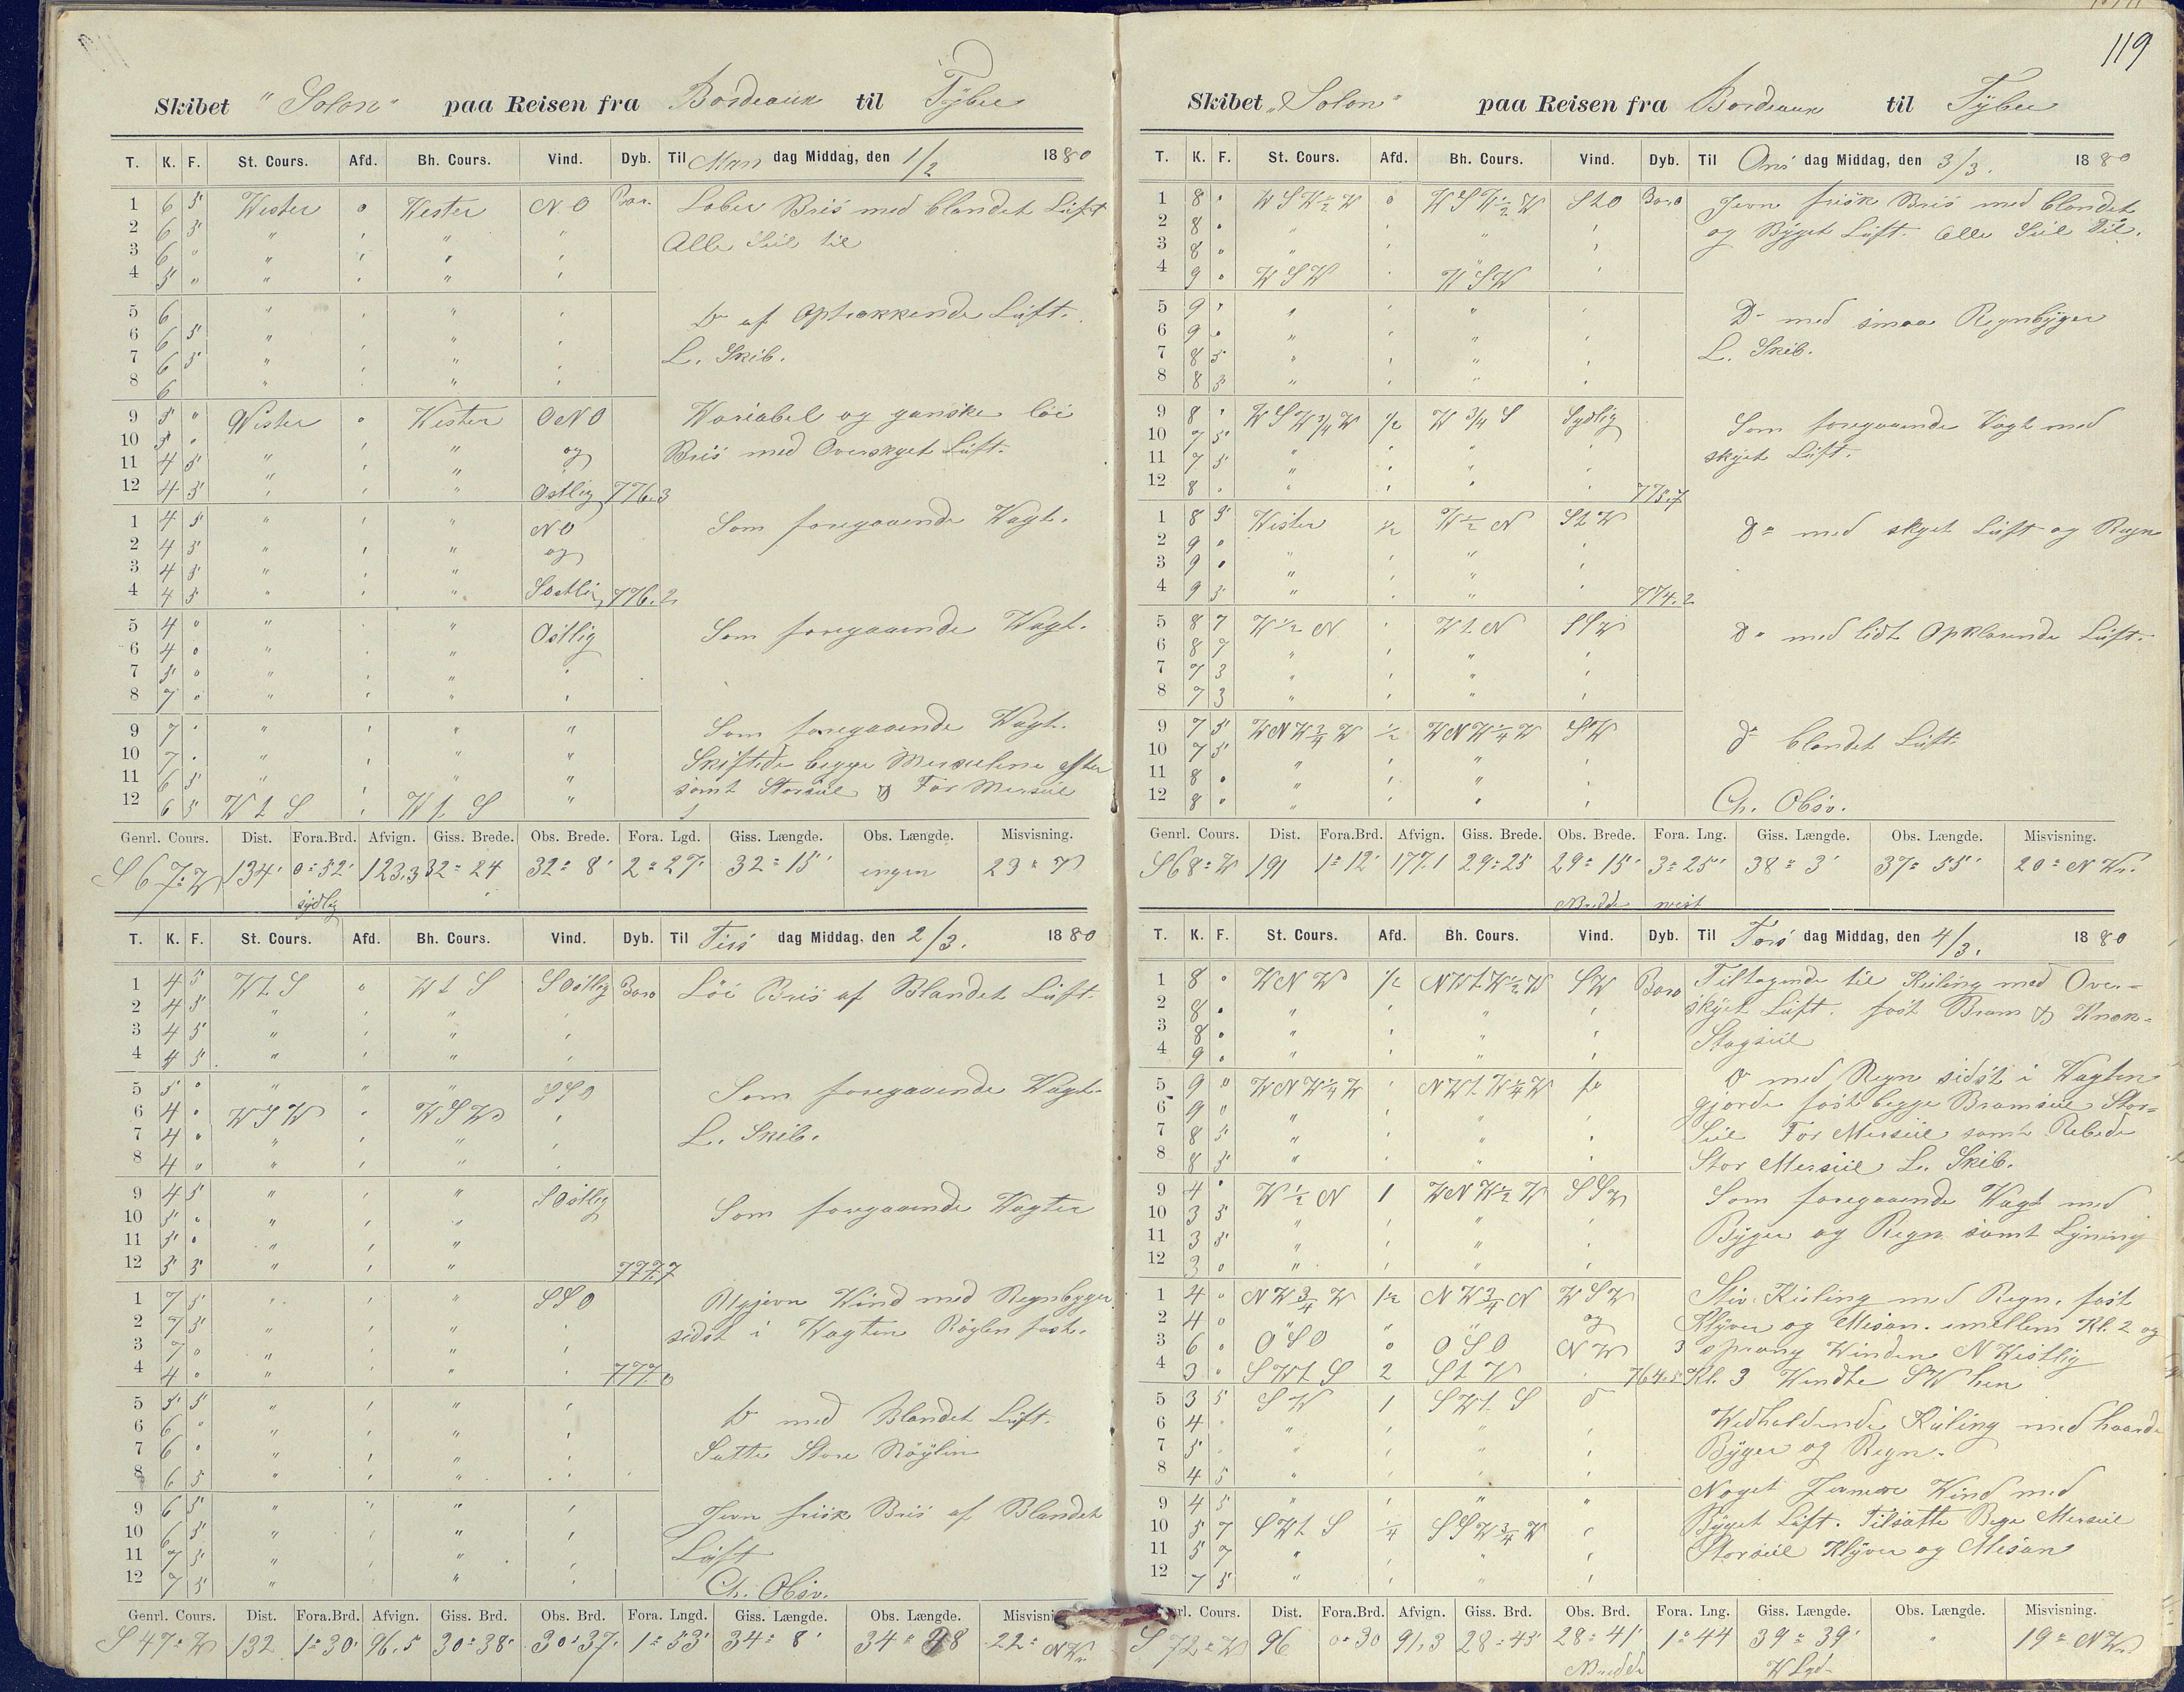 Skibet "Solon" paa Reisen fra Bordeaux til Tybee
T. K. F. St. Cours. Afd. Bh. Cours. Vind. Dyb. Til Man dag Middag, den 1/2 1880
1 6 5 Wester 0 Wester NO Bar. Laber Bris med blandet Luft
2 6 5 " " " " Alle Siil til
3 6 " " " " "
4 5 " " " " "
5 6 " " " " Do af Optrækkende Luft.
6 6 5 " " " "
7 6 5 " " " " L. Skib.
8 6 " " " "
9 5 " Wester 0 Wester ONO Variabel og ganske löi
10 5 " " " " og Bris med Overskyet Luft.
11 4 5 " " "
12 4 5 " " " Ostlig 776.3
1 4 5 " " " NO Som foregaaende Vagt.
2 4 5 " " " og
3 4 5 " " "
4 4 5 " " " Sostlig 776.2
5 4 0 " " " Ostlig Som foregaaende Vagt.
6 4 0 " " "
7 5 0 " " " "
8 7 0 " " " "
9 7 " " " " " Som foregaaende Vagt.
10 7 " " " " " Skiftede begge Merseilene after
11 6 5 " " " " samt Storseil & For Merseil
12 6 5 W t S " W t S "
Genrl. Cours. Dist. Fora.Brd. Afvign. Giss. Brede. Obs. Brede. Fora. Lgd. Giss. Længde. Obs. Længde. Misvisning.
S 67° W 134' 0° 52' 123.3 32° 24 32° 8' 2° 27' 32° 15' ingen 23°
sydlig
T. K. F. St. Cours. Afd. Bh. Cours. Vind. Dyb. Til Tirs dag Middag, den 2/3. 1880
1 4 5 W t S 0 W t S SOstlig Baro Löi Bris af Blandet Luft.
2 4 5 " " " "
3 4 5 " " " "
4 4 5 " " " "
5 5 0 " " " SSO Som foregaaende Vagt.
6 4 0 WSW " WSW "
7 4 0 " " " " L. Skib.
8 4 0 " " " "
9 4 5 " " " SOstlig Som foregaaende Vagter
10 5 " " " "
11 5 0 " " "
12 5 5 " " " 777.7
1 7 5 " " " SSO Ujevn Vind med Regnbyger
2 7 5 " " " " sidst i Vagten Röylen fast.
3 7 0 " " " "
4 4 0 " " " " 777.0
5 5 5 " " " " Do med Blandet Luft.
6 6 " " " " "
7 6 0 " " " " Satte Store Röylin
8 6 5 " " " "
9 6 5 " " " " Jevn frisk Bris af Blandet
10 6 5 " " " "
11 7 5 " " " " Luft
12 7 5 " " " " Ch. Obsv.
Genrl. Cours. Dist. Fora.Brd. Afvign. Giss. Brd. Obs. Brd. Fora. Lngd. Giss. Længde. Obs. Længde. Misvisni
S 47° W 132 1° 30' 96.5 30° 38' 30° 37' 1° 53' 34° 8' 34° 22° NW.
119
Skibet "Solon" paa Reisen fra Bordeaux til Tybee
T. K. F. St. Cours. Afd. Bh. Cours. Vind. Dyb. Til Ons dag Middag, den 3/3. 1880
1 8 " WSW½W 0 WSW½W StO Baro Jevn frisk Bris med blandet
2 8 " " " " " og Byget Luft. Alle Siil Til.
3 8 " " " " "
4 9 " WSW " WSW "
5 9 " " " " " Do med smaa Regnbyger
6 9 " " " "
7 8 5 " " " " L. Skib.
8 8 5 " " " "
9 8 " WSW¾W ½ W ¾ S Sydlig Som foregaaende Vagt med
10 7 5 " " " "
11 7 5 " " " skyet Luft.
12 8 " " " " " 775.7
1 8 5 Wester ½ W½N StW
2 9 0 " " " " Do med skyet Luft og Regn
3 9 " " " " "
4 9 5 " " " " 774.2
5 8 7 W½N " WtN SSW Do med lidt Opklarende Luft.
6 8 7 " " " "
7 7 3 " " " "
8 7 3 " " " "
9 7 5 WNW¾W ½ WNW¼W SW Do blandet Luft
10 7 5 " " " "
11 8 " " " " "
12 8 " " " " " Ch. Obsv.
Genrl. Cours. Dist. Fora.Brd. Afvign. Giss. Brede. Obs. Brede. Fora. Lng. Giss. Længde. Obs. Længde. Misvisning.
S 68° W 191 1° 12' 177.1 29° 25 29° 15' 3° 25' 38° 3' 37° 55' 20° NW.
Nredde vest
T. K. F. St. Cours. Afd. Bh. Cours. Vind. Dyb. Til Tors dag Middag, den 4/3. 1880
1 8 " WNW ½ NWtW½W SW Baro Tiltagende til Kuling med Over-
2 8 " " " " " skyet Luft. fast Bram & Knæk-
3 8 " " " " " Stagsiil
4 9 " " " " "
5 9 " WNW¼W " NWtW¼W Do Do med Regn sidst i Vagten
6 9 " " " " " gjorde fast begge Bramseil Stor-
7 8 5 " " " " Seil For Merseil samt Rebede
8 8 5 " " " " Stor Merseil L. Skib.
9 4 " W½N 1 WNW½W SSW Som foregaaende Vagt med
10 3 5 " " " "
11 3 5 " " " " Byger og Regn samt Lyning
12 3 0 " " " "
1 4 0 NW¾W 1½ NW¾N WSW Stiv Kuling med Regn. fast
2 4 0 " " " og Klyver og Mesan. imellem Kl. 2 og
3 6 " OSO 0 OSO NW 3 sprang Vinden N Westlig
4 3 " SWtS 2 StW " 764.5 Kl. 3 Vendte SW hen
5 3 5 SW 1 SWtS Do
6 4 " " " " " Vedholdende Kuling med haarde
7 5 " " " " " Byger og Regn.
8 4 5 " " " "
9 4 5 " " " " Noget Jevnere Vind med
10 5 7 SWtS ¼ SSW¾W " Byget Luft. Tilsatte Bege Merseil
11 5 7 " " " " Storseil Klyver og Mesan
12 7 5 " " " "
rl. Cours. Dist. Fora.Brd. Afvign. Giss. Brd. Obs. Brd. Fora. Lng. Giss. Længde. Obs. Længde. Misvisning.
S 72° W 96 0° 30 91,3 28° 45' 28° 41' 1° 44 39° 39' " 19° NW.
Nredde W Lgd.